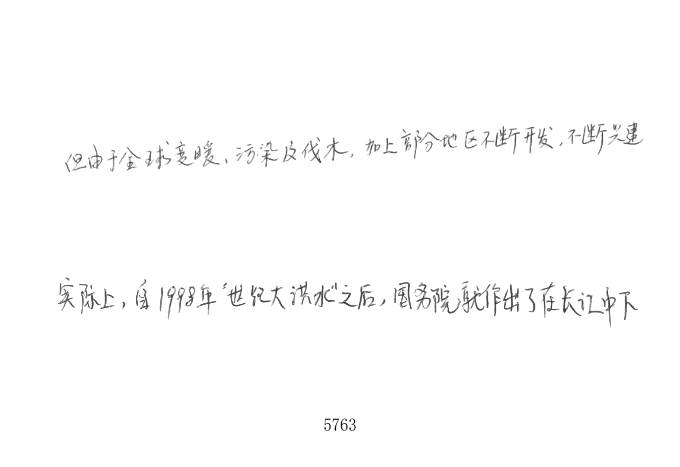 但由于全球变暖、污染及伐木，加上部分地区不断开发，不断兴建
实际上，自1998年“世纪大洪水”之后，国务院就作出了在长江中下
5763